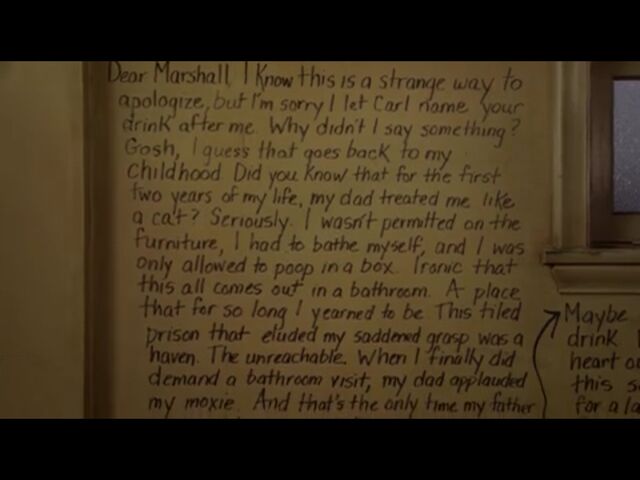 Dear Marshall, I know this is a strange way to
apologize, but I'm sorry I let Carl name your
drink after me. Why didn't I say something?
Gosh, I guess that goes back to my
childhood. Did you know that for the first
two years of my life, my dad treated me like
a cat? Seriously. I wasn't permitted on the
furniture, I had to bathe myself, and I was
only allowed to poop in a box. Ironic that
this all comes out in a bathroom. A place
that for so long I yearned to be. This tiled
prison that eluded my saddened grasp was a
haven. The unreachable. When I finally did
demand a bathroom visit, my dad applauded
my moxie. And that's the only time my father
Maybe
drink
heart
this
for a